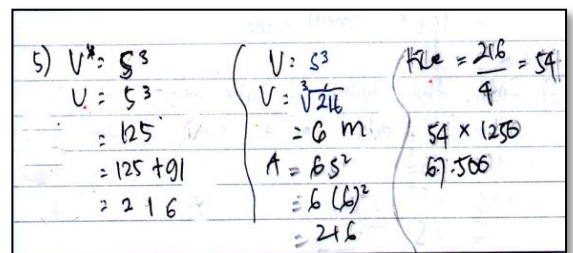 5) V* = S³
U = 5³
= 125
= 125 + 91
= 216
V = S³
V = ∛216
= 6 m
A = 6S²
= 6 (6)²
= 216
= 216/4 = 54
54 × 1250
67.500